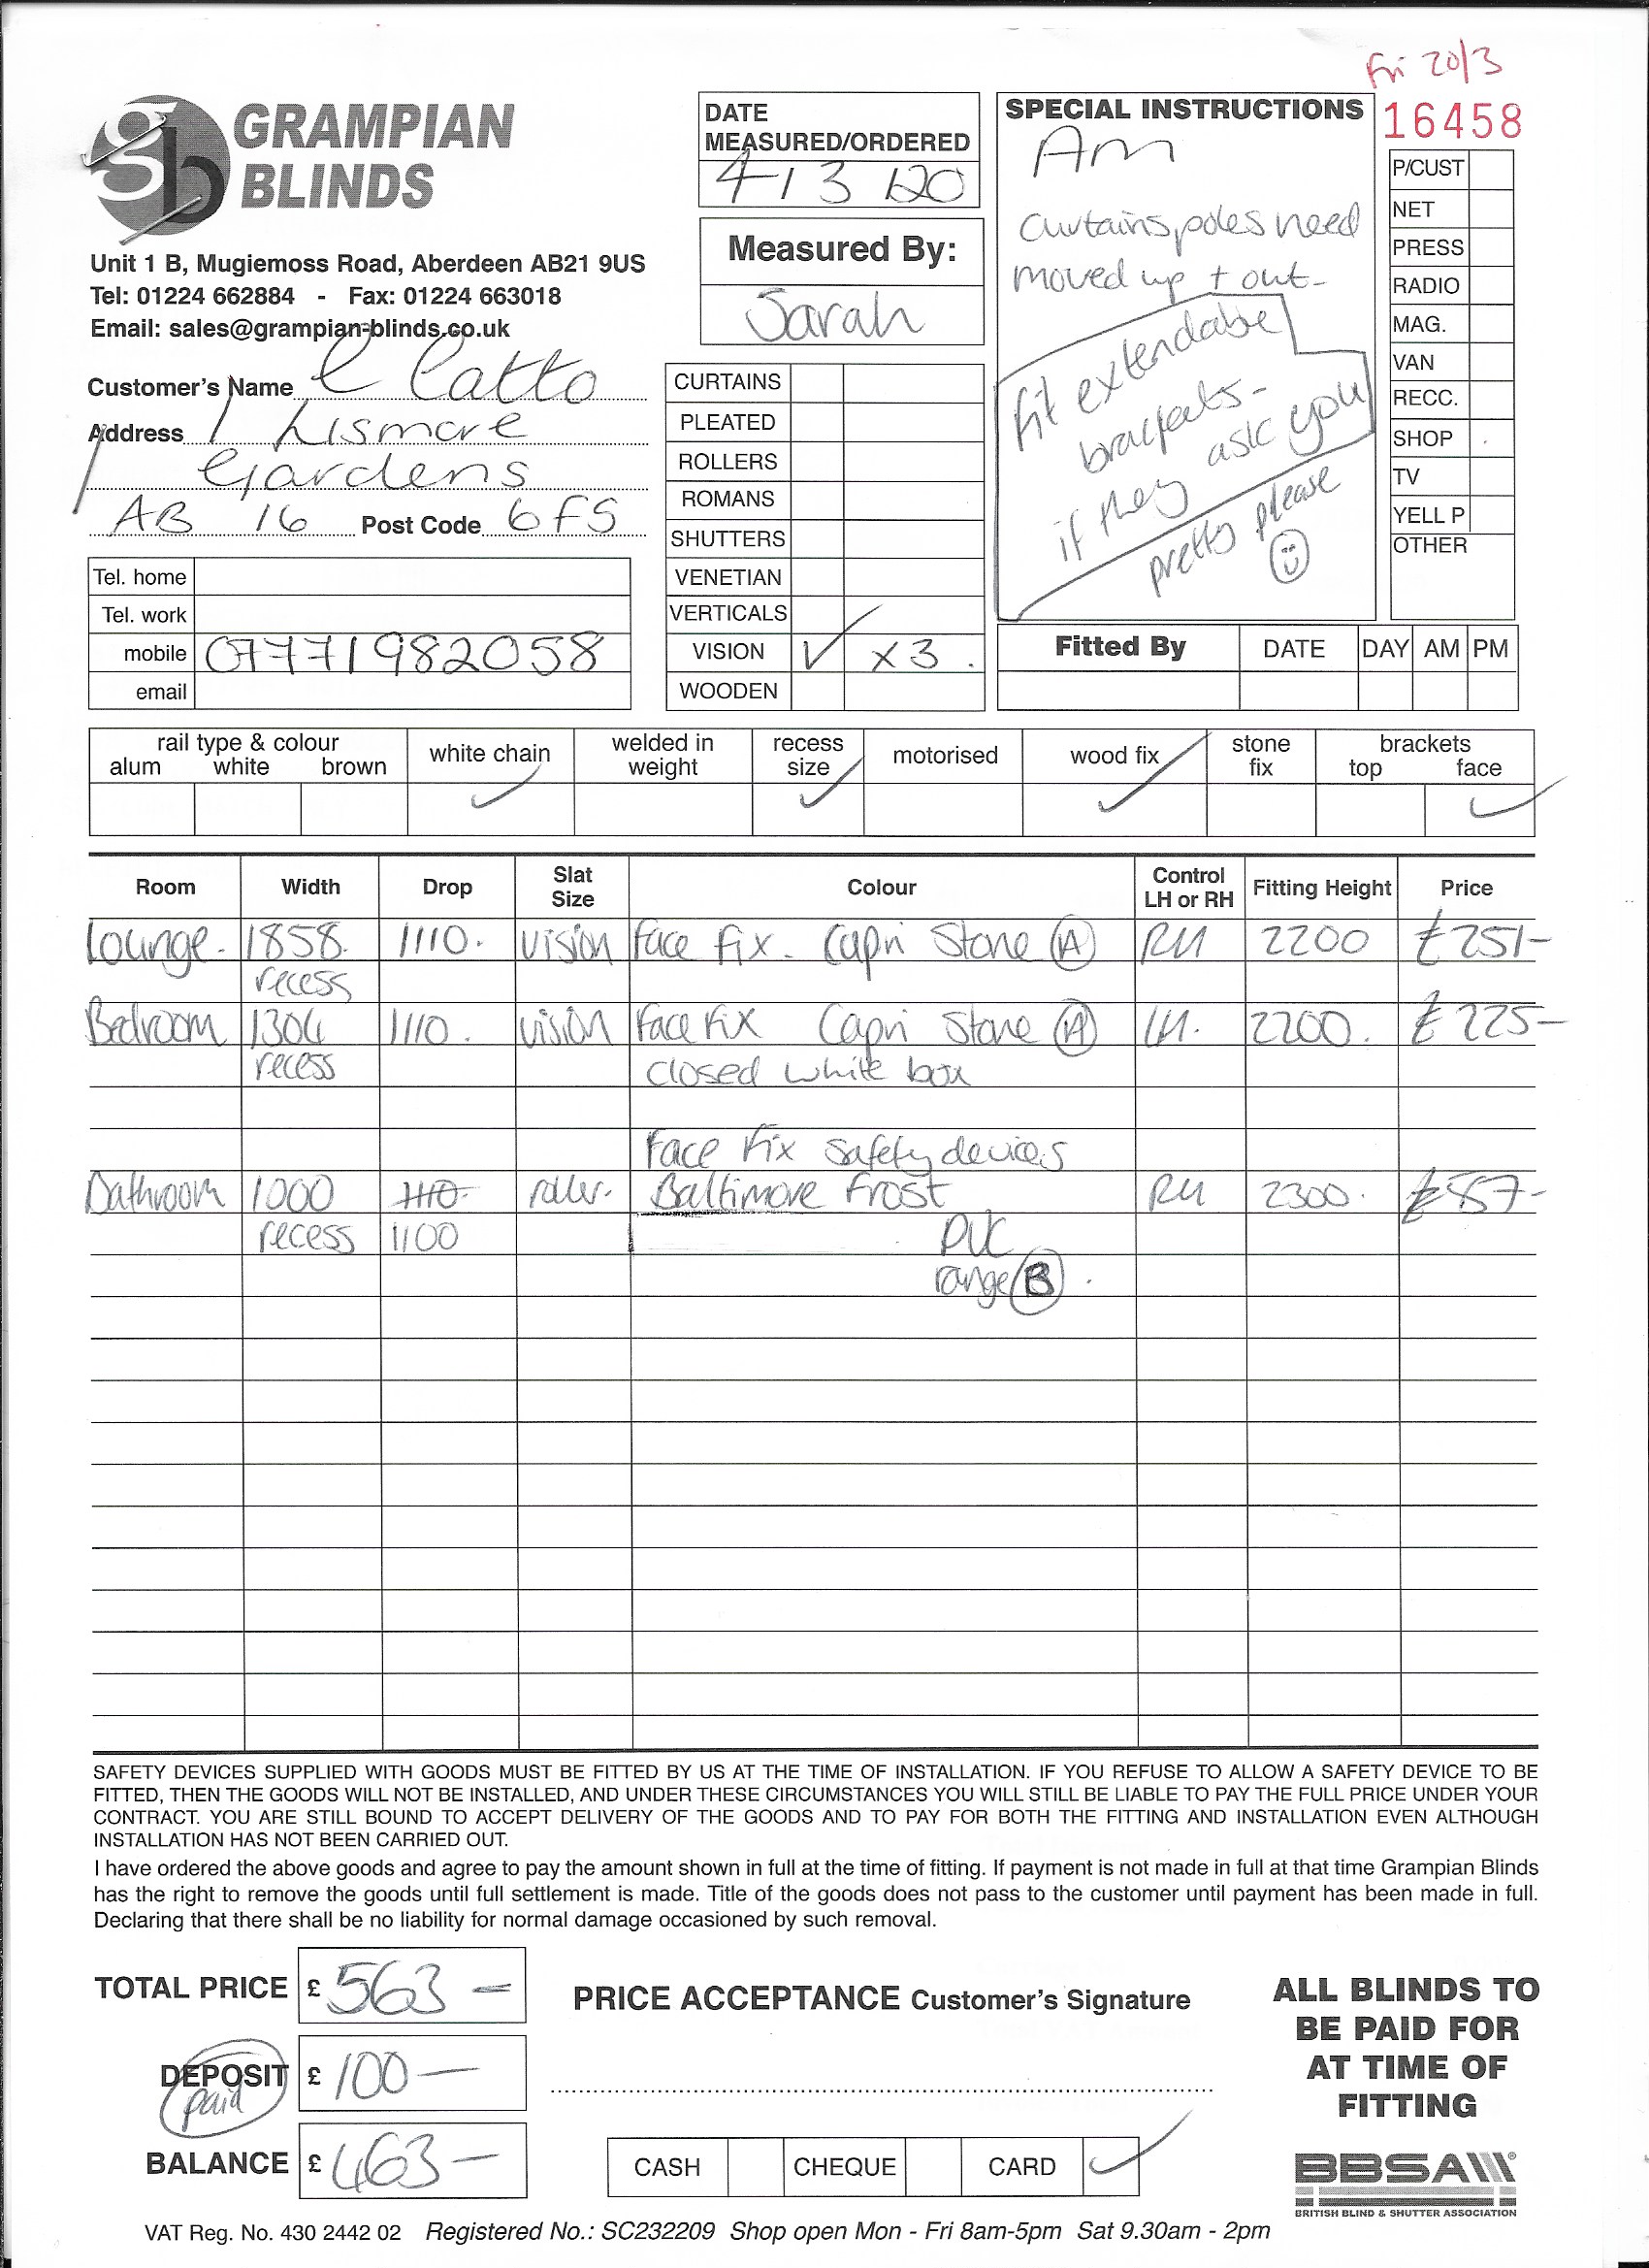 Fri 20/3
GRAMPIAN
BLINDS
Unit 1 B, Mugiemoss Road, Aberdeen AB21 9US
Tel: 01224 662884 - Fax: 01224 663018
Email: sales@grampian-blinds.co.uk
Customer's Name E Catto
Address 1 Lismore
Gardens
AB 16 Post Code 6FS
Tel. home
Tel. work
mobile 07771982058
email
DATE
MEASURED/ORDERED
4/3/20
Measured By:
Sarah
CURTAINS
PLEATED
ROLLERS
ROMANS
SHUTTERS
VENETIAN
VERTICALS
VISION ✓ x3.
WOODEN
SPECIAL INSTRUCTIONS
Am
curtains poles need
moved up + out-
fit extendable
brackets-
if they ask you
pretty please
16458
P/CUST
NET
PRESS
RADIO
MAG.
VAN
RECC.
SHOP
TV
YELL P
OTHER
Fitted By DATE DAY AM PM
rail type & colour
alum white brown
white chain ✓
welded in weight
recess size ✓
motorised
wood fix ✓
stone fix
brackets
top face ✓
Room Width Drop Slat Size Colour Control LH or RH Fitting Height Price
Lounge- 1858. 1110. vision face fix. Capri Stone (A) RH 2200 £251-
recess
Bedroom 1304 1110. vision face fix Capri Stone (A) LH. 2200. £225-
recess closed white box
Face fix safety devices
Bathroom 1000 1110 roller. Baltimore Frost RH 2300. £87-
recess 1100 PVC
range (B).
SAFETY DEVICES SUPPLIED WITH GOODS MUST BE FITTED BY US AT THE TIME OF INSTALLATION. IF YOU REFUSE TO ALLOW A SAFETY DEVICE TO BE
FITTED, THEN THE GOODS WILL NOT BE INSTALLED, AND UNDER THESE CIRCUMSTANCES YOU WILL STILL BE LIABLE TO PAY THE FULL PRICE UNDER YOUR
CONTRACT. YOU ARE STILL BOUND TO ACCEPT DELIVERY OF THE GOODS AND TO PAY FOR BOTH THE FITTING AND INSTALLATION EVEN ALTHOUGH
INSTALLATION HAS NOT BEEN CARRIED OUT.
I have ordered the above goods and agree to pay the amount shown in full at the time of fitting. If payment is not made in full at that time Grampian Blinds
has the right to remove the goods until full settlement is made. Title of the goods does not pass to the customer until payment has been made in full.
Declaring that there shall be no liability for normal damage occasioned by such removal.
TOTAL PRICE £ 563-
DEPOSIT £ 100-
paid
BALANCE £ 463-
PRICE ACCEPTANCE Customer's Signature
CASH CHEQUE CARD ✓
ALL BLINDS TO
BE PAID FOR
AT TIME OF
FITTING
BBSA
BRITISH BLIND & SHUTTER ASSOCIATION
VAT Reg. No. 430 2442 02 Registered No.: SC232209 Shop open Mon - Fri 8am-5pm Sat 9.30am - 2pm